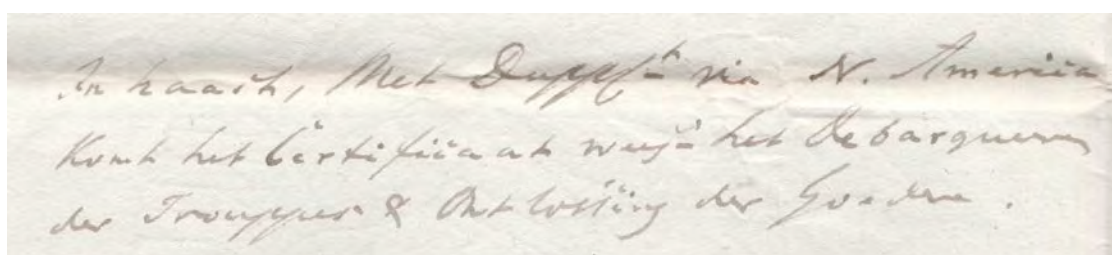 In haast, Met Dupp^t via N. America
Komt het Certificaat weg^s het Debarqueren
der Trouppes & Ontlossing der Goedren.